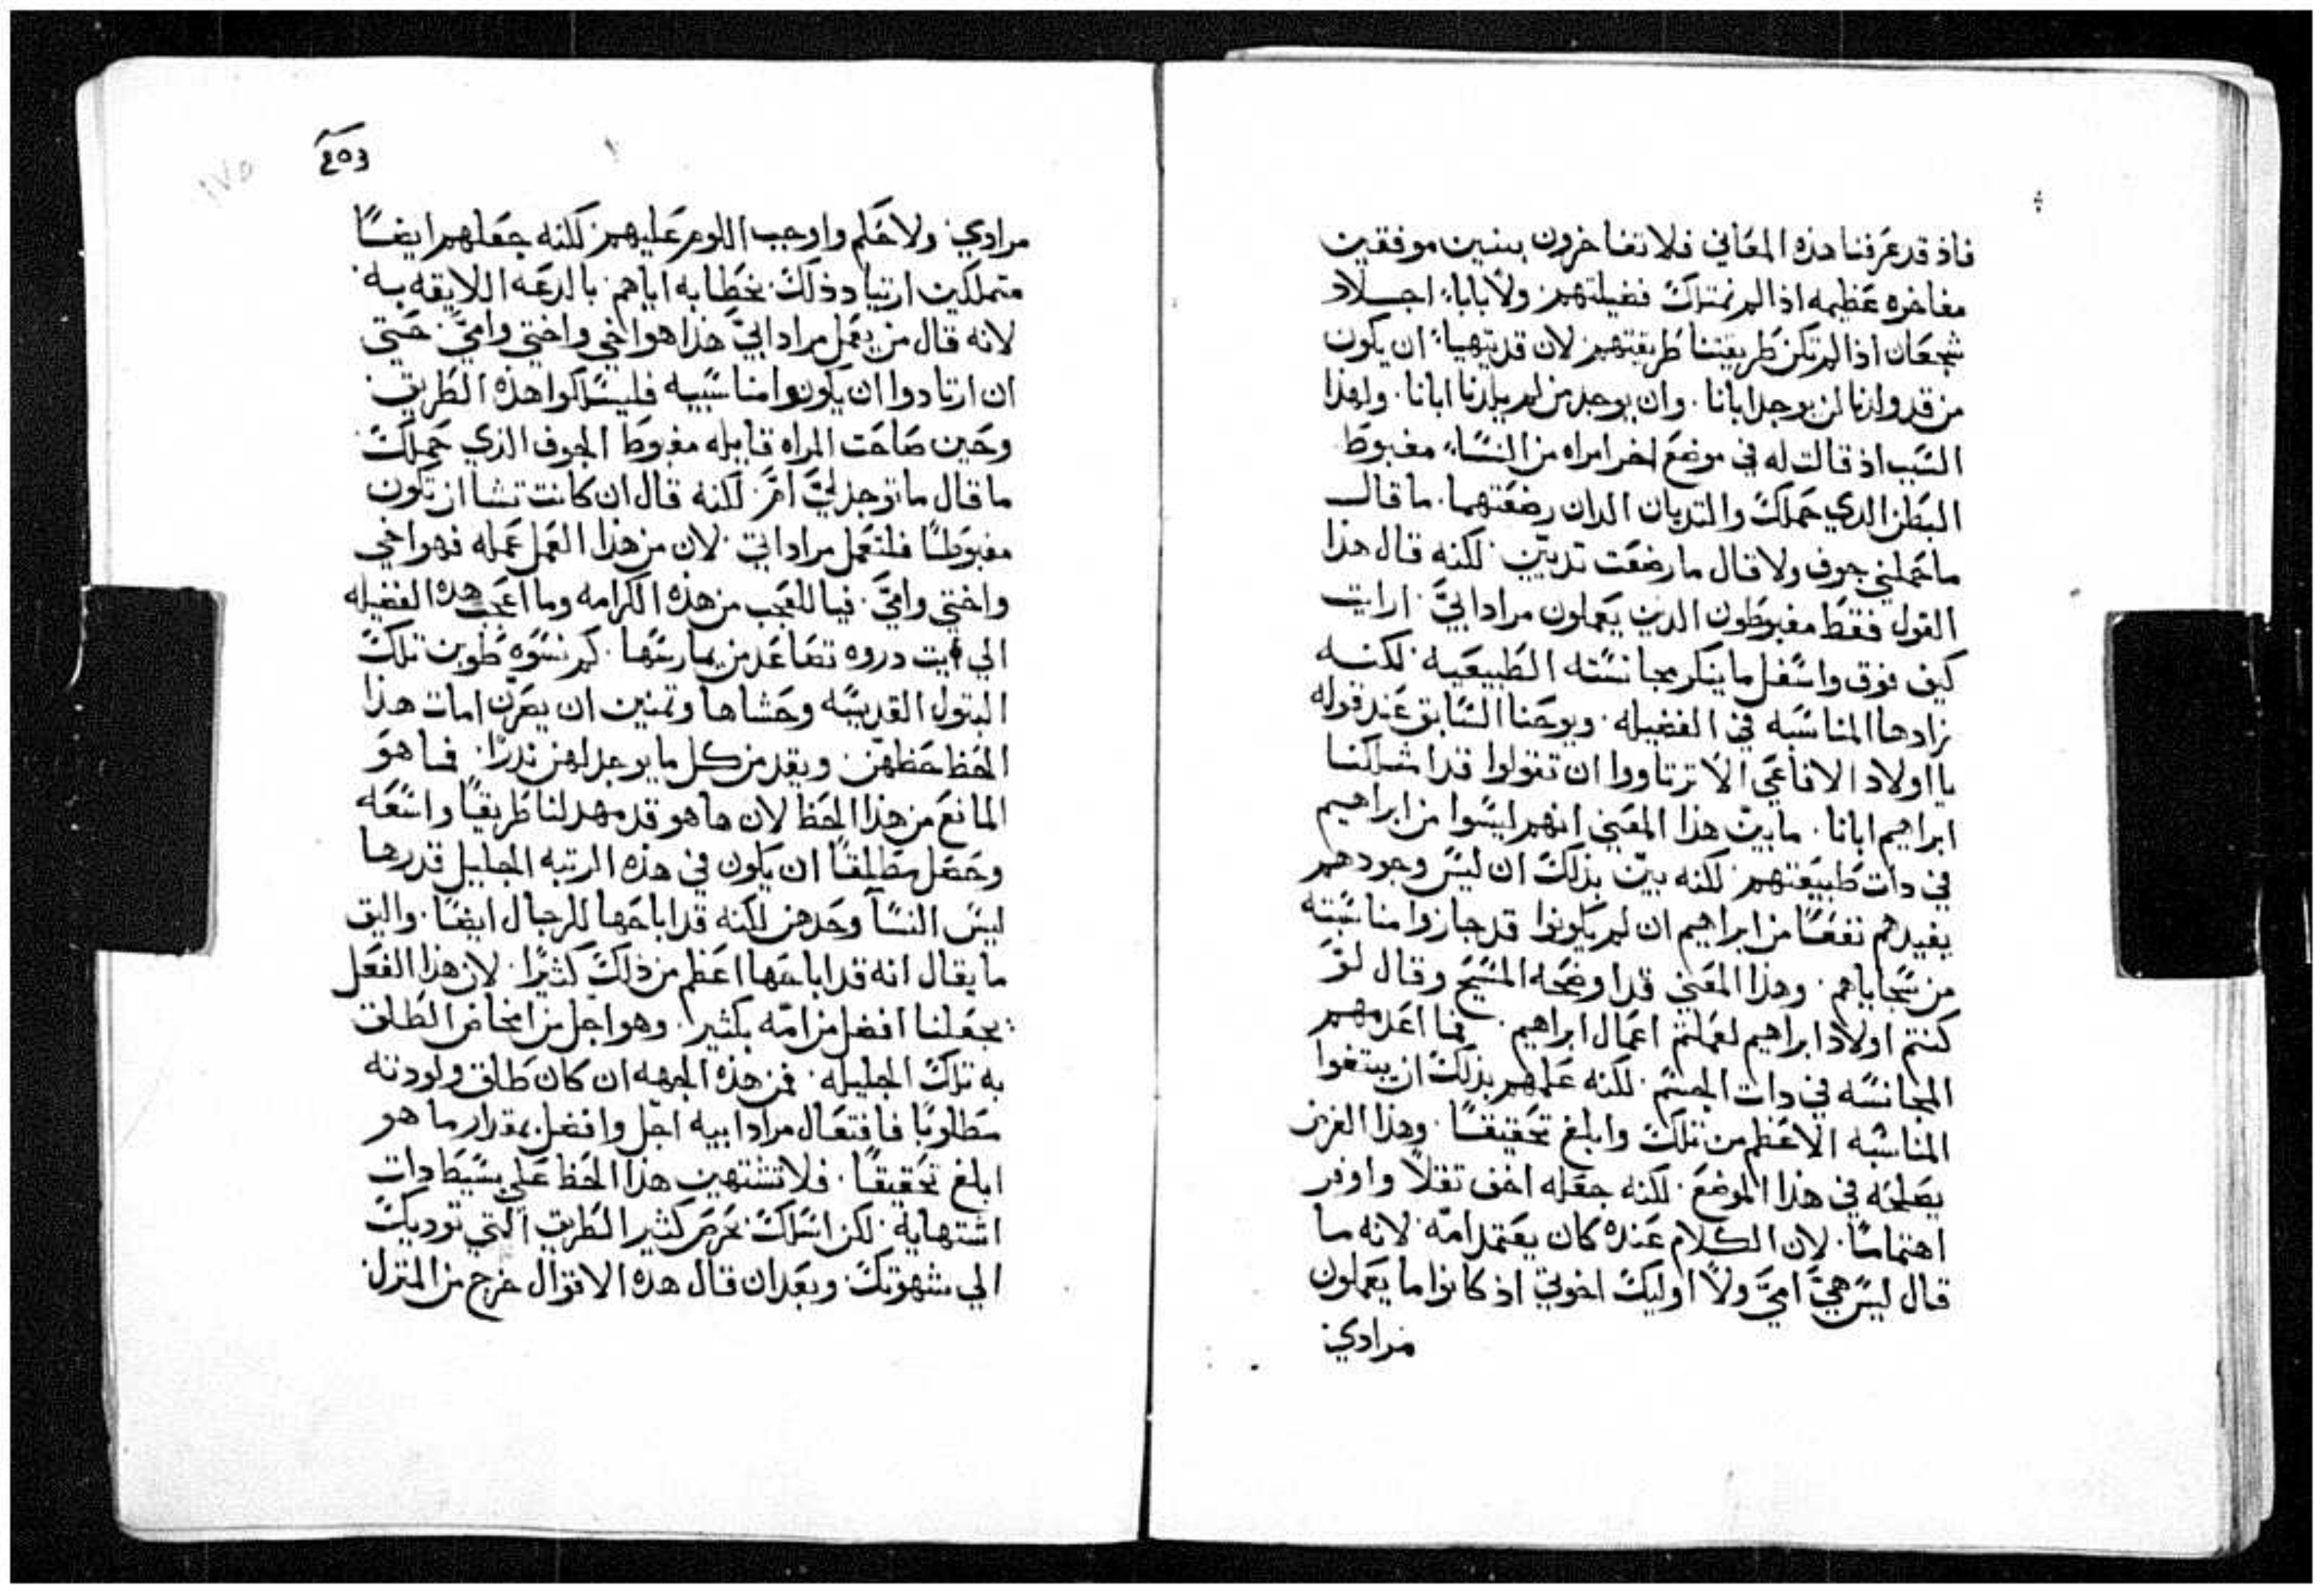 فاذ قد عرفنا هذه المعاني فلا تفاخرون ببنين موفقين
مفاخره عظيمه اذا لم نمتلك فضيلتهم ولا باباء اجلاد
شجعان اذا لم تكن طريقتنا طريقتهم لان قد يتهياء ان يكون
من قد ولدنا لن يوجد ابانا. وان يوجد من لم يلدنا ابانا. ولهذا
السبب اذ قالت له في موضع اخر امراه من النساء مغبوط
البطن الدي حملك والتديان الدان رضعتهما. ما قال
ما حملني جوف ولا قال ما رضعت تديين لكنه قال هذا
القول فقط مغبوطون الدين يعملون مراد ابي ارايت
كيف فوق واسفل ما ينكر مجانسته الطبيعيه لكنه
زادها المناسبه في الفضيله. ويوحنا السابق عند قوله
يا اولاد الافاعي الا ترتاووا ان تقولوا قد امتلكنا
ابراهيم ابانا. ما بين هذا المعني انهم ليسوا من ابراهيم
في دات طبيعتهم لكنه بين بذلك ان ليس وجودهم
يفيدهم نفعا من ابراهيم ان لم يكونوا قد حازوا مناسبته
من سجاياهم. وهذا المعني قد اوضحه المسيح وقال لو
كنتم اولاد ابراهيم لعملتم اعمال ابراهيم. فما اعدمهم
المجانسه في دات الجسم. لكنه علمهم بذلك ان يبتغوا
المناسبه الاعظم من تلك وابلغ تحقيقا. وهذا الغرض
يصلحه في هذا الموضع. لكنه جعله اخف تقلا واوفر
اهتماما. لان الكلام عنده كان يعتمد امه لانه ما
قال ليس هي امي ولا اوليك اخوتي اذ كانوا ما يعملون
مرادي
203
١٧٥
مرادي ولا حكم واوجب اللوم عليهم لكنه جعلهم ايضا
متملكين ارتياد ذلك بخطابه اياهم بالدعه اللايقه به
لانه قال من يعمل مراد ابي هذا هو اخي واختي وامي. حتي
ان ارتادوا ان يكونوا مناسبيه فليسلكوا هذه الطريق
وحين صاحت المراه قايله مغبوط الجوف الذي حملك
ما قال ما توجد لي ام. لكنه قال ان كانت تشا ان تكون
مغبوطا فلتعمل مراد ابي لان من هذا العمل عمله فهو اخي
واختي وامي. فيا للعجب من هذه الكرامه وما اعجب هده الفضيله
الي ايت دروه تصاعد من يمارسها. كم نسوه طوبن تلك
البتول القديسه وحشاها وتمنين ان يصرن امات هذا
الحظ حظهن. ويقد من كل ما يوجد لهن ندرا. فما هو
المانع من هذا الحظ لان ها هو قد مهد لنا طريقا واسعه
وحصل مطلقا ان يكون في هذه الرتبه الجليل قدرها
ليس النسا وحدهن لكنه قد اباحها للرجال ايضا. واليق
ما يقال انه قد اباحها اعظم من ذلك كثيرا. لان هذا الفعل
يجعلنا افضل من امه بكثير. وهو اجل من امخاض الطلق
به تلك الجليله. فمن هذه الجهه ان كان طلق ولودته
مطلوبا فافتعال مراد ابيه اجل وافضل بمقدار ما هو
ابلغ تحقيقا. فلا تشتهين هذا الحظ علي بسيط دات
اشتهايه. لكن اسلك بحرص كثير الطريق التي توديك
الي شهوتك. وبعد ان قال هده الاقوال خرج من المنزل